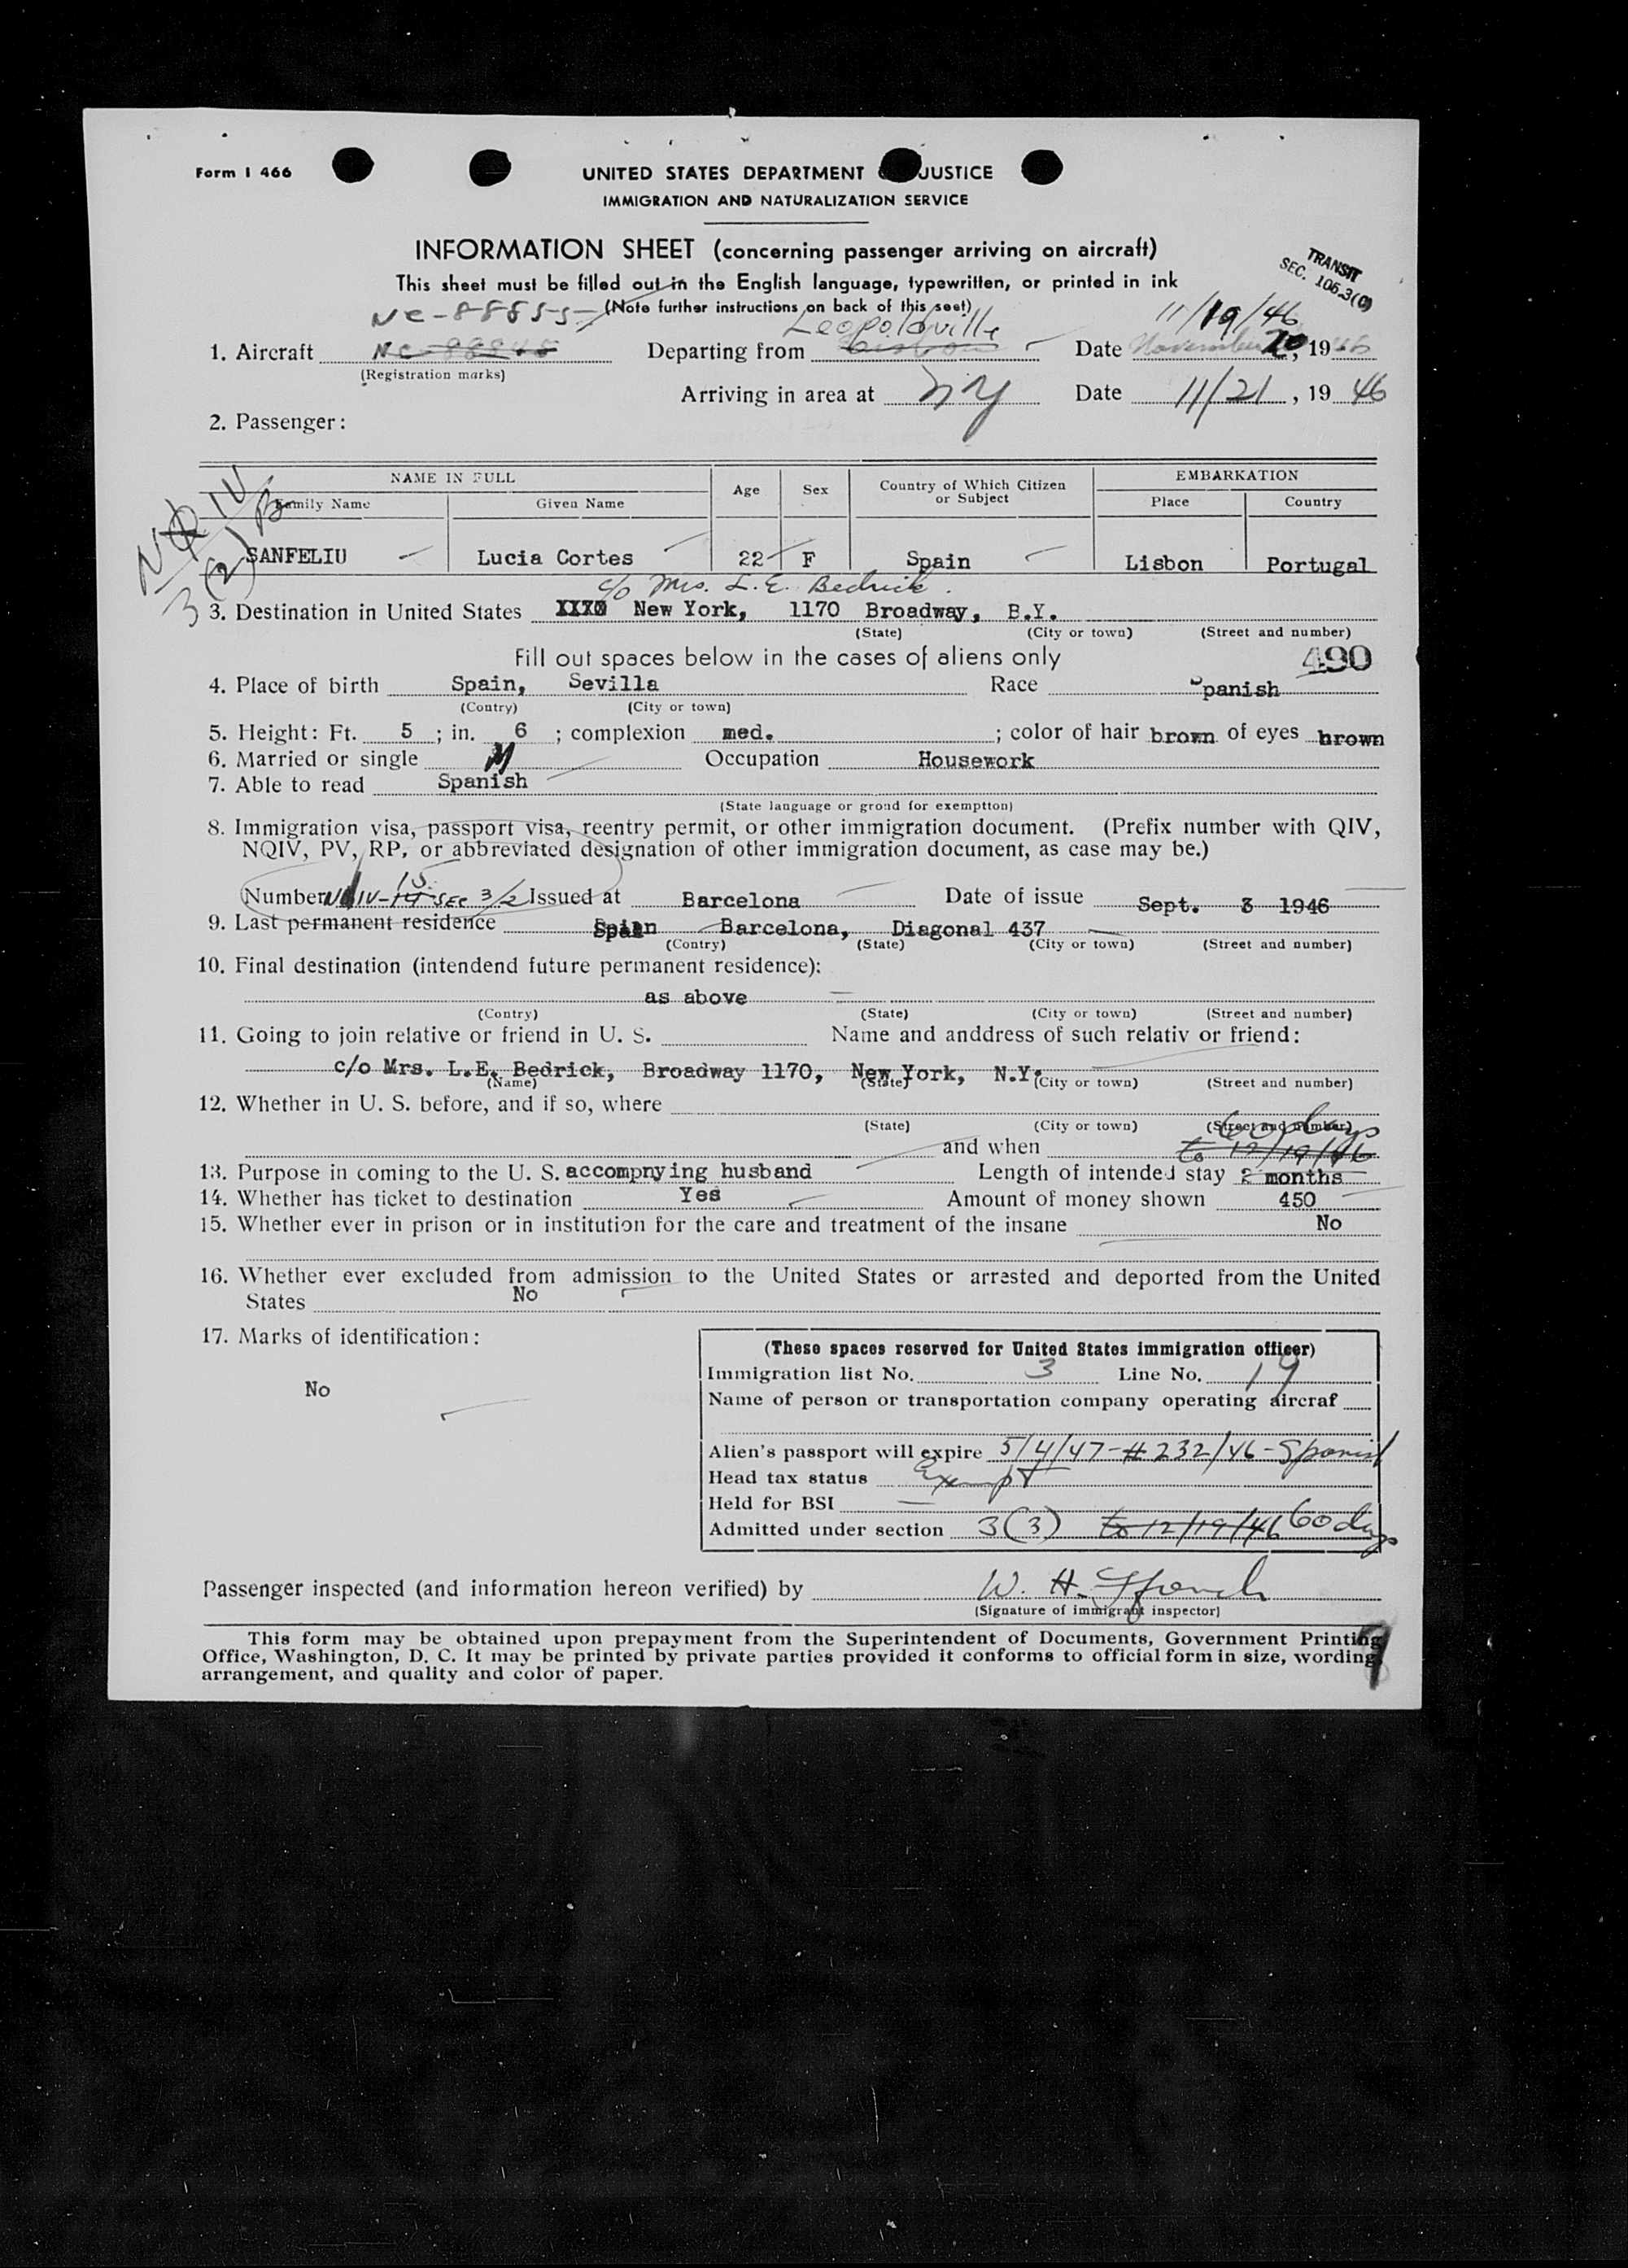 Form I 466
UNITED STATES DEPARTMENT JUSTICE
IMMIGRATION AND NATURALIZATION SERVICE
INFORMATION SHEET (concerning passenger arriving on aircraft)
This sheet must be filled out in the English language, typewritten, or printed in ink
TRANSIT
SEC. 106.3(C)
(Note further instructions on back of this seet)
NC-88855 Leopoldville 11/19/46
1. Aircraft Departing from Lisbon Date November 20, 1946
(Registration marks)
Arriving in area at NY Date 11/21, 19 46
2. Passenger:
NAME IN FULL Age Sex Country of Which Citizen or Subject EMBARKATION
Family Name Given Name Place Country
NQIV
3(2) B
SANFELIU Lucia Cortes 22 F Spain Lisbon Portugal
c/o Mrs. L. E. Bedrick.
3. Destination in United States New York, 1170 Broadway, B.Y.
(State) (City or town) (Street and number)
Fill out spaces below in the cases of aliens only
490
4. Place of birth Spain, Sevilla Race Spanish
(Contry) (City or town)
5. Height: Ft. 5 ; in. 6 ; complexion med. ; color of hair brown of eyes brown
6. Married or single M Occupation Housework
7. Able to read Spanish
(State language or grond for exemptton)
8. Immigration visa, passport visa, reentry permit, or other immigration document. (Prefix number with QIV,
NQIV, PV, RP, or abbreviated designation of other immigration document, as case may be.)
15
Number IV-14 SEC 3/2 Issued at Barcelona Date of issue Sept. 3 1946
9. Last permanent residence Spian Barcelona, Diagonal 437
(Contry) (State) (City or town) (Street and number)
10. Final destination (intendend future permanent residence):
as above
(Contry) (State) (City or town) (Street and number)
11. Going to join relative or friend in U. S. Name and anddress of such relativ or friend:
c/o Mrs. L.E. Bedrick, Broadway 1170, New York, N.Y.
(Name) (State) (City or town) (Street and number)
12. Whether in U. S. before, and if so, where
(State) (City or town) (Street and number)
60 days
and when to 12/19/46
13. Purpose in coming to the U. S. accompnying husband Length of intended stay 2 months
14. Whether has ticket to destination Yes Amount of money shown 450
15. Whether ever in prison or in institution for the care and treatment of the insane No
16. Whether ever excluded from admission to the United States or arrested and deported from the United
States No
17. Marks of identification:
No
(These spaces reserved for United States immigration officer)
Immigration list No. 3 Line No. 19
Name of person or transportation company operating aircraf
Alien's passport will expire 5/4/47-#232/46-Spanish
Head tax status Exempt
Held for BSI —
Admitted under section 3(3) to 12/19/46 60 days
Passenger inspected (and information hereon verified) by W. H.
(Signature of immigrant inspector)
This form may be obtained upon prepayment from the Superintendent of Documents, Government Printing
Office, Washington, D. C. It may be printed by private parties provided it conforms to official form in size, wording,
arrangement, and quality and color of paper.
9